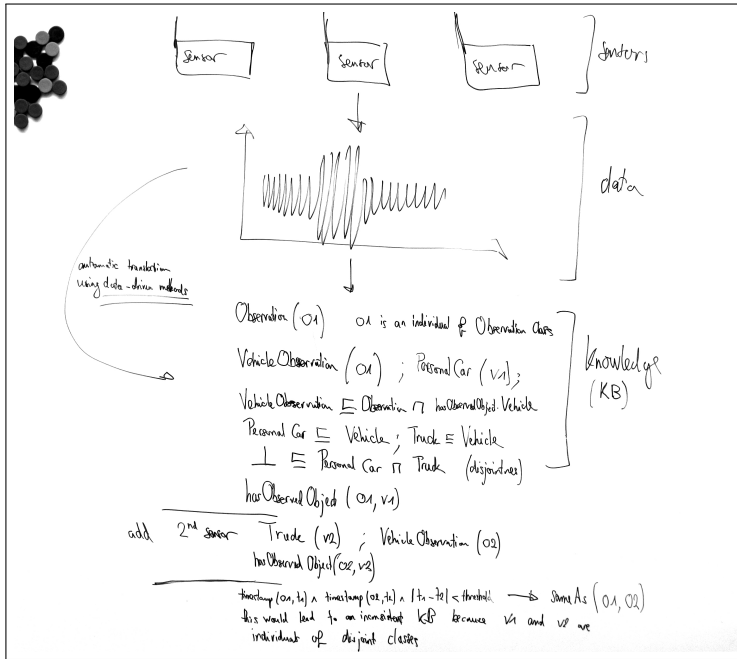 sensor sensor sensor
sensors
data
automatic translation
using data-driven methods
Observation (O1) O1 is an individual of Observation class
VehicleObservation (O1) ; PersonalCar (v1) ;
VehicleObservation ⊑ Observation ⊓ hasObservedObject.Vehicle
Personal Car ⊑ Vehicle ; Truck ⊑ Vehicle
⊥ ⊑ Personal Car ⊓ Truck (disjointnes)
hasObservedObject (O1, v1)
knowledge
(KB)
add 2nd sensor Truck (v2) ; VehicleObservation (O2)
hasObservedObject (O2, v2)
timestamp (O1, t1) ∧ timestamp (O2, t2) ∧ |t1 - t2| < threshold → sameAs (O1, O2)
this would lead to an inconsistent KB because v1 and v2 are
individual of disjoint classes